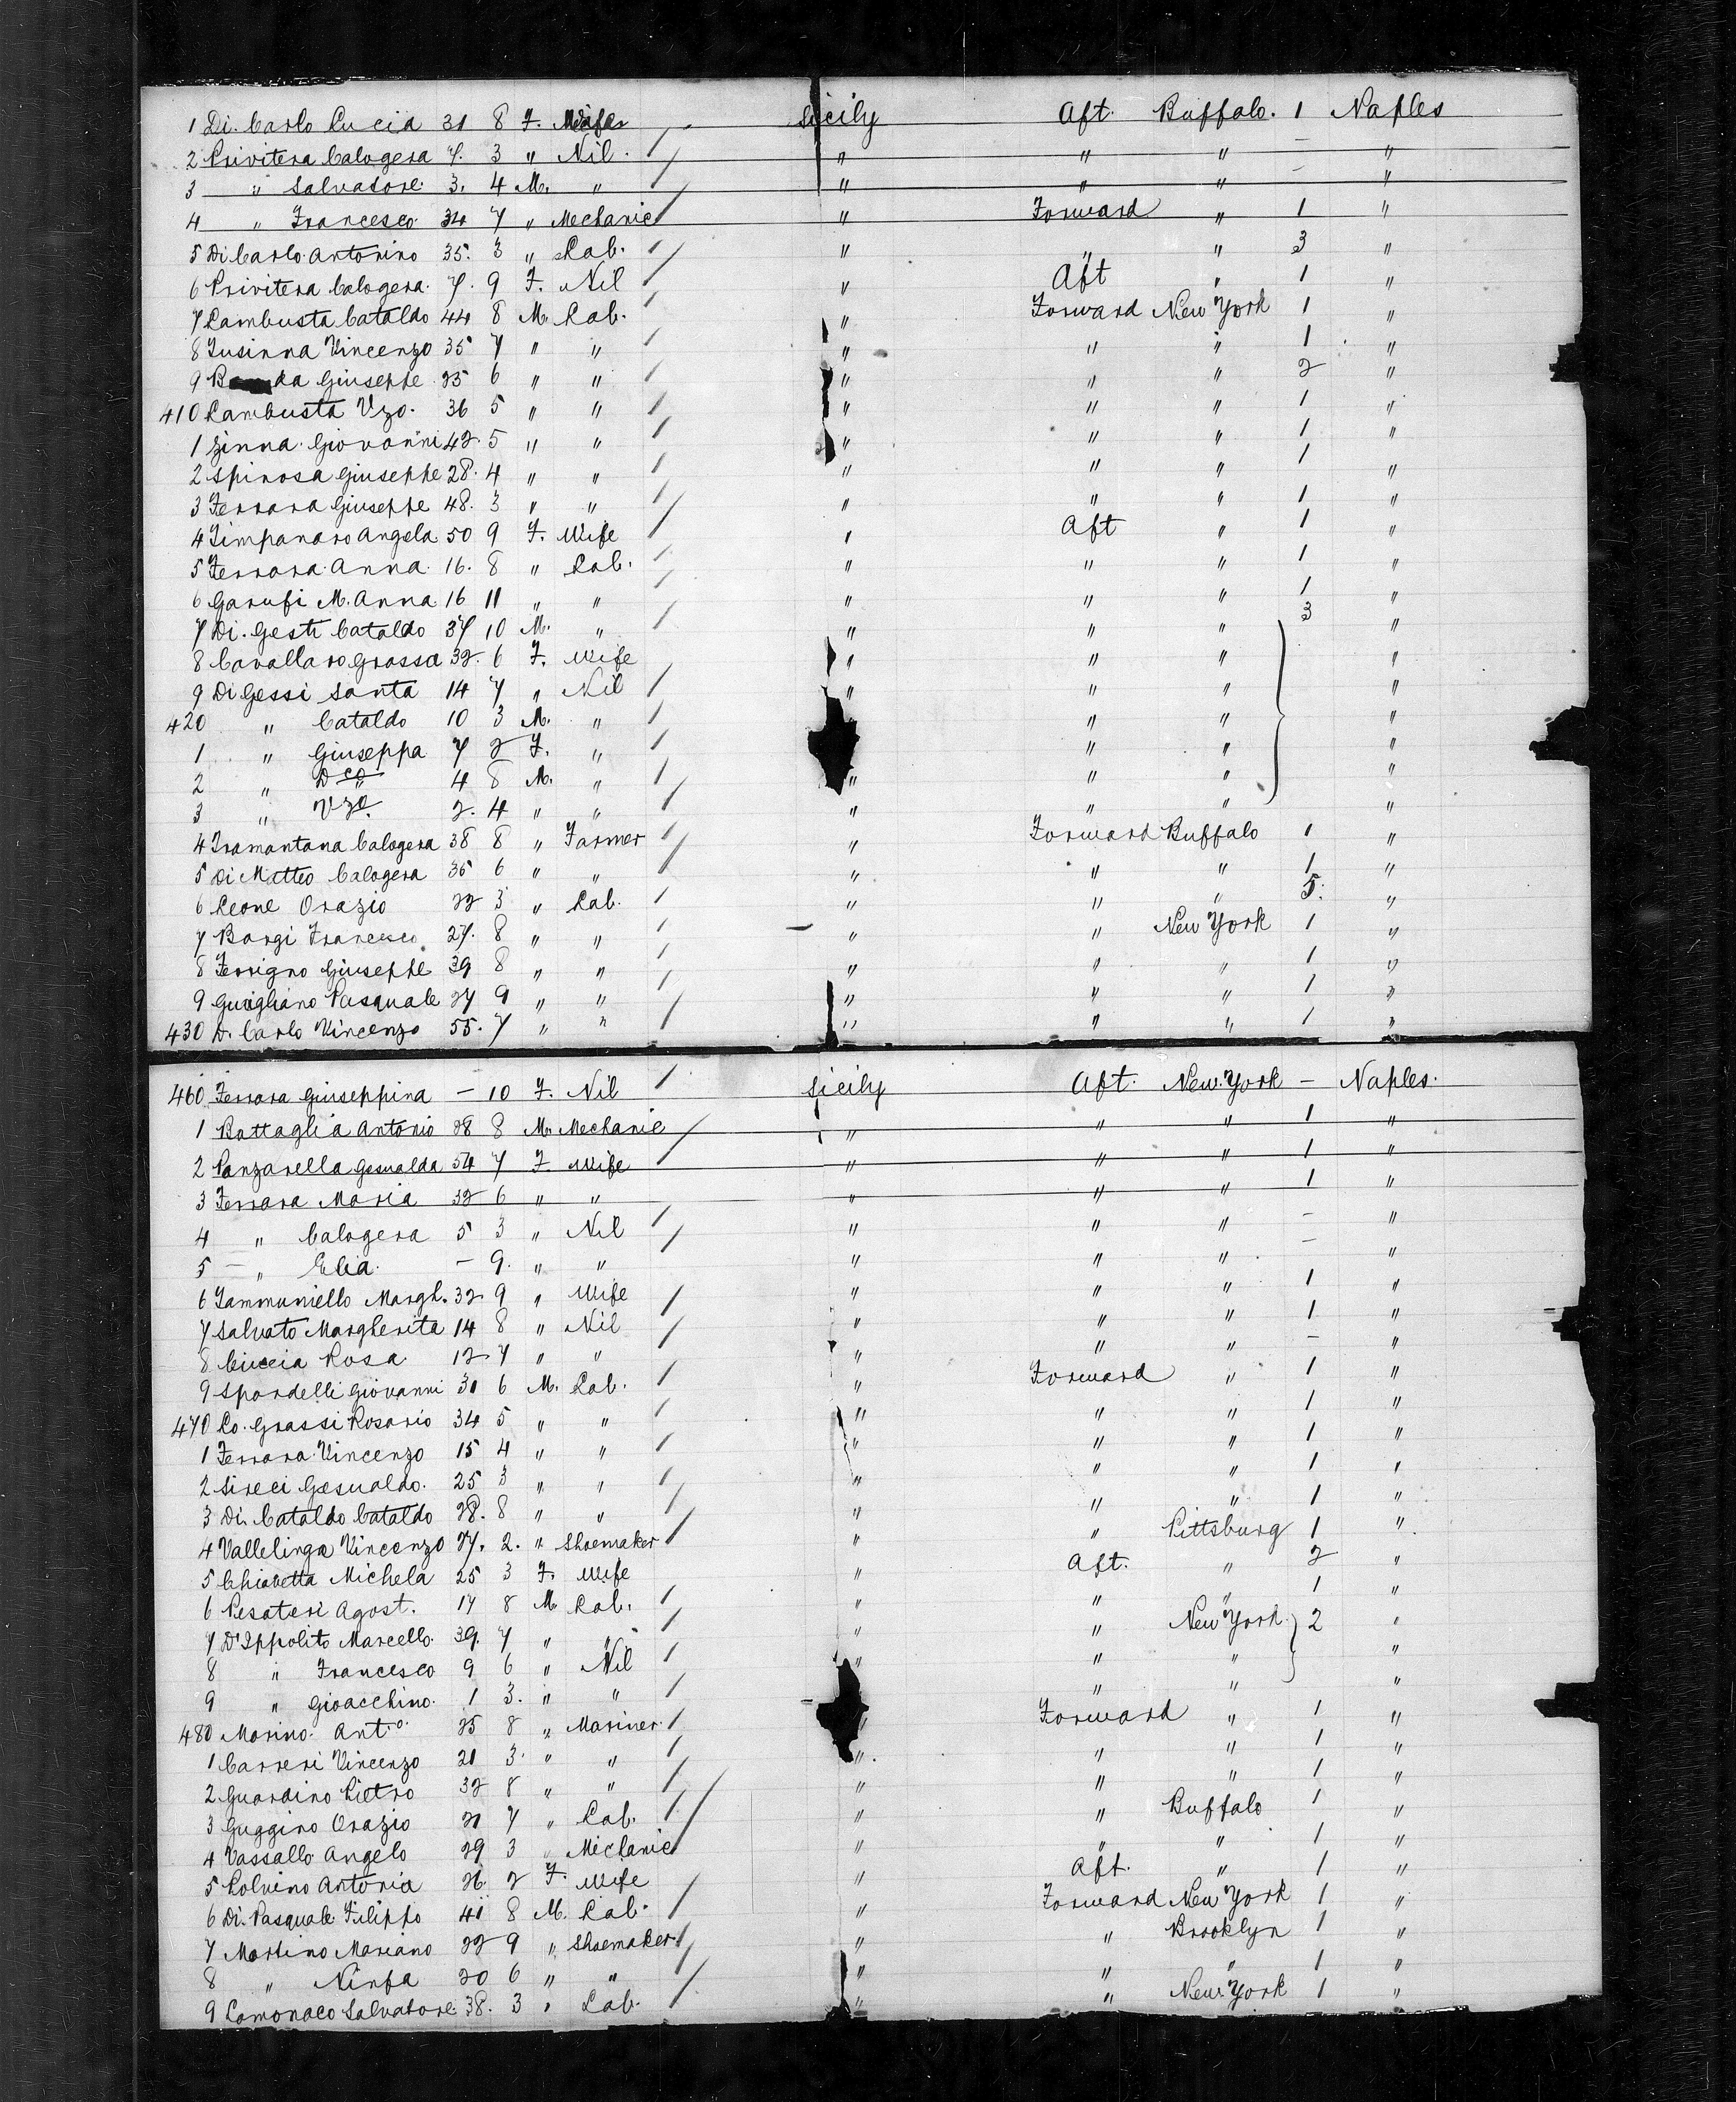 1 Di. Carlo Lucia 31 8 F. Wife Sicily Aft. Buffalo. 1 Naples
2 Privitera Calogera 7. 3 " Nil. " " " - "
3 " Salvatore. 3. 4 M. " " " " - "
4 " Francesco 34 7 " Mechanic " Forward " 1 "
5 Di Carlo Antonino 35. 3 " Lab. " " " 3 "
6 Privitera Calogera. 7. 9 F. Nil " Aft " 1 "
7 Lambusta Cataldo 44 8 M. Lab. " Forward New York 1 "
8 Fusinna Vincenzo 35 7 " " " " " 1 "
9 Giuseppe 25 6 " " " " " 2 "
410 Lambusta Vzo. 36 5 " " " " " 1 "
1 Zinna Giovanni 42. 5 " " " " " 1 "
2 Spinosa Giuseppe 28. 4 " " " " " 1 "
3 Ferrara Giuseppe 48. 3 " " " " " 1 "
4 Zimpanaro Angela 50 9 F. Wife " Aft " 1 "
5 Ferrara Anna 16. 8 " Lab. " " " 1 "
6 Garufi M. Anna 16 11 " " " " " 1 "
7 Di. Gesti Cataldo 37 10 M. " " " " 3 "
8 Cavallaro Grassa 32. 6 F. Wife " " " "
9 Di Gessi Santa 14 7 " Nil " " " "
420 " Cataldo 10 3 M. " " " "
1 " Giuseppa 7 2 F. " " " "
2 " Dco 4 8 M. " " " " "
3 " Vzo. 2. 4 " " " " " "
4 Tramontana Calogera 38 8 " Farmer " Forward Buffalo 1 "
5 Di Matteo Calogera 35 6 " " " " " 1 "
6 Leone Orazio 22 3 " Lab. " " " 5. "
7 Borgi Francesco. 27. 8 " " " " New York 1 "
8 Ferrigno Giuseppe 39 8 " " " " " 1 "
9 Guigliano Pasquale 27 9 " " " " " 1 "
430 D. Carlo Vincenzo 55. 7 " " " " " 1 "
460 Ferrara Giuseppina - 10 F. Nil Sicily Aft. New York - Naples.
1 Battaglia Antonio 28 8 M. Mechanic " " " 1 "
2 Panzarella Gesualda 54 7 F. Wife " " " 1 "
3 Ferrara Maria 32 6 " " " " " 1 "
4 " Calogera 5 3 " Nil " " " - "
5 - " Elia. - 9. " " " " " - "
6 Iammuniello Margh. 32 9 " Wife " " " 1 "
7 Salvato Margherita 14 8 " Nil " " " 1 "
8 Ciuccia Rosa 12 7 " " " " " - "
9 Spardelli Giovanni 30 6 M. Lab. " Forward " 1 "
470 Lo. Grassi Rosario 34 5 " " " " " 1 "
1 Ferrara Vincenzo 15 4 " " " " " 1 "
2 Sireci Gesualdo. 25 3 " " " " " 1 "
3 Di. Cataldo Cataldo 28. 8 " " " " " 1 "
4 Vallelinga Vincenzo 27. 2. " Shoemaker " " Pittsburg 1 "
5 Chiavetta Michela 25 3 F. Wife " Aft. " 2 "
6 Pesateri Agost. 17 8 M Lab. " " " 1 "
7 D'Ippolito Marcello. 39. 7 " " " " New York 2 "
8 " Francesco 9 6 " Nil " " " "
9 " Gioacchino. 1 3. " " " " "
480 Marino. Anto. 25 8 " Mariner " Forward " 1 "
1 Carreri Vincenzo 21 3. " " " " " 1 "
2 Guardino Pietro 32 8 " " " " " 1 "
3 Guggino Orazio 21 7 " Lab. " " Buffalo 1 "
4 Vassallo Angelo 29 3 " Michanic " " " 1 "
5 Polvino Antonia 26 2 F. Wife " Aft. " 1 "
6 Di. Pasquale Filippo 41 8 M. Lab. " Forward New York 1 "
7 Martino Mariano 22 9 " Shoemaker " " Brooklyn 1 "
8 " Ninfa 20 6 " " " " " 1 "
9 Lomonaco Salvatore 38. 3 " Lab. " " New York 1 "